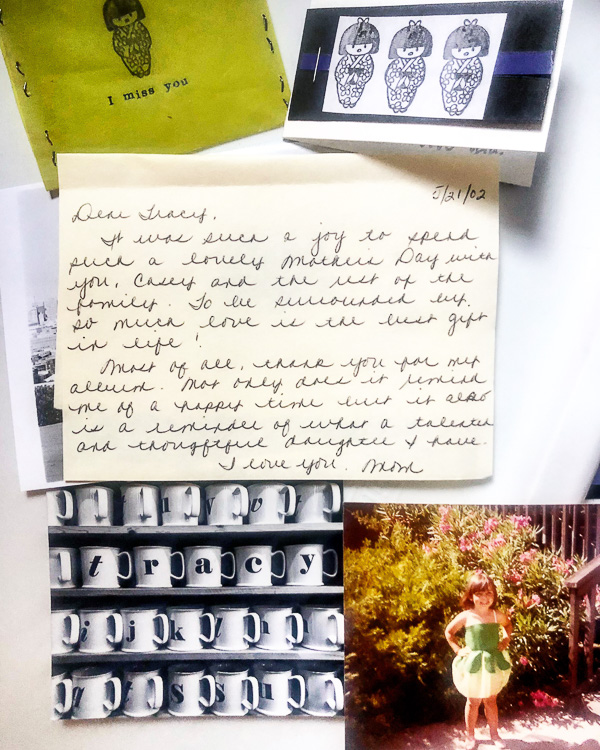 I miss you
5/21/02
Dear Tracy,
It was such a joy to spend
such a lovely Mothers Day with
you, Casey and the rest of the
family. To be surrounded by
so much love is the best gift
in life!
Most of all, thank you for my
album. Not only does it remind
me of a happy time but it also
is a reminder of what a talented
and thoughtful daughter I have.
I love you. Mom
tracy
i j k l